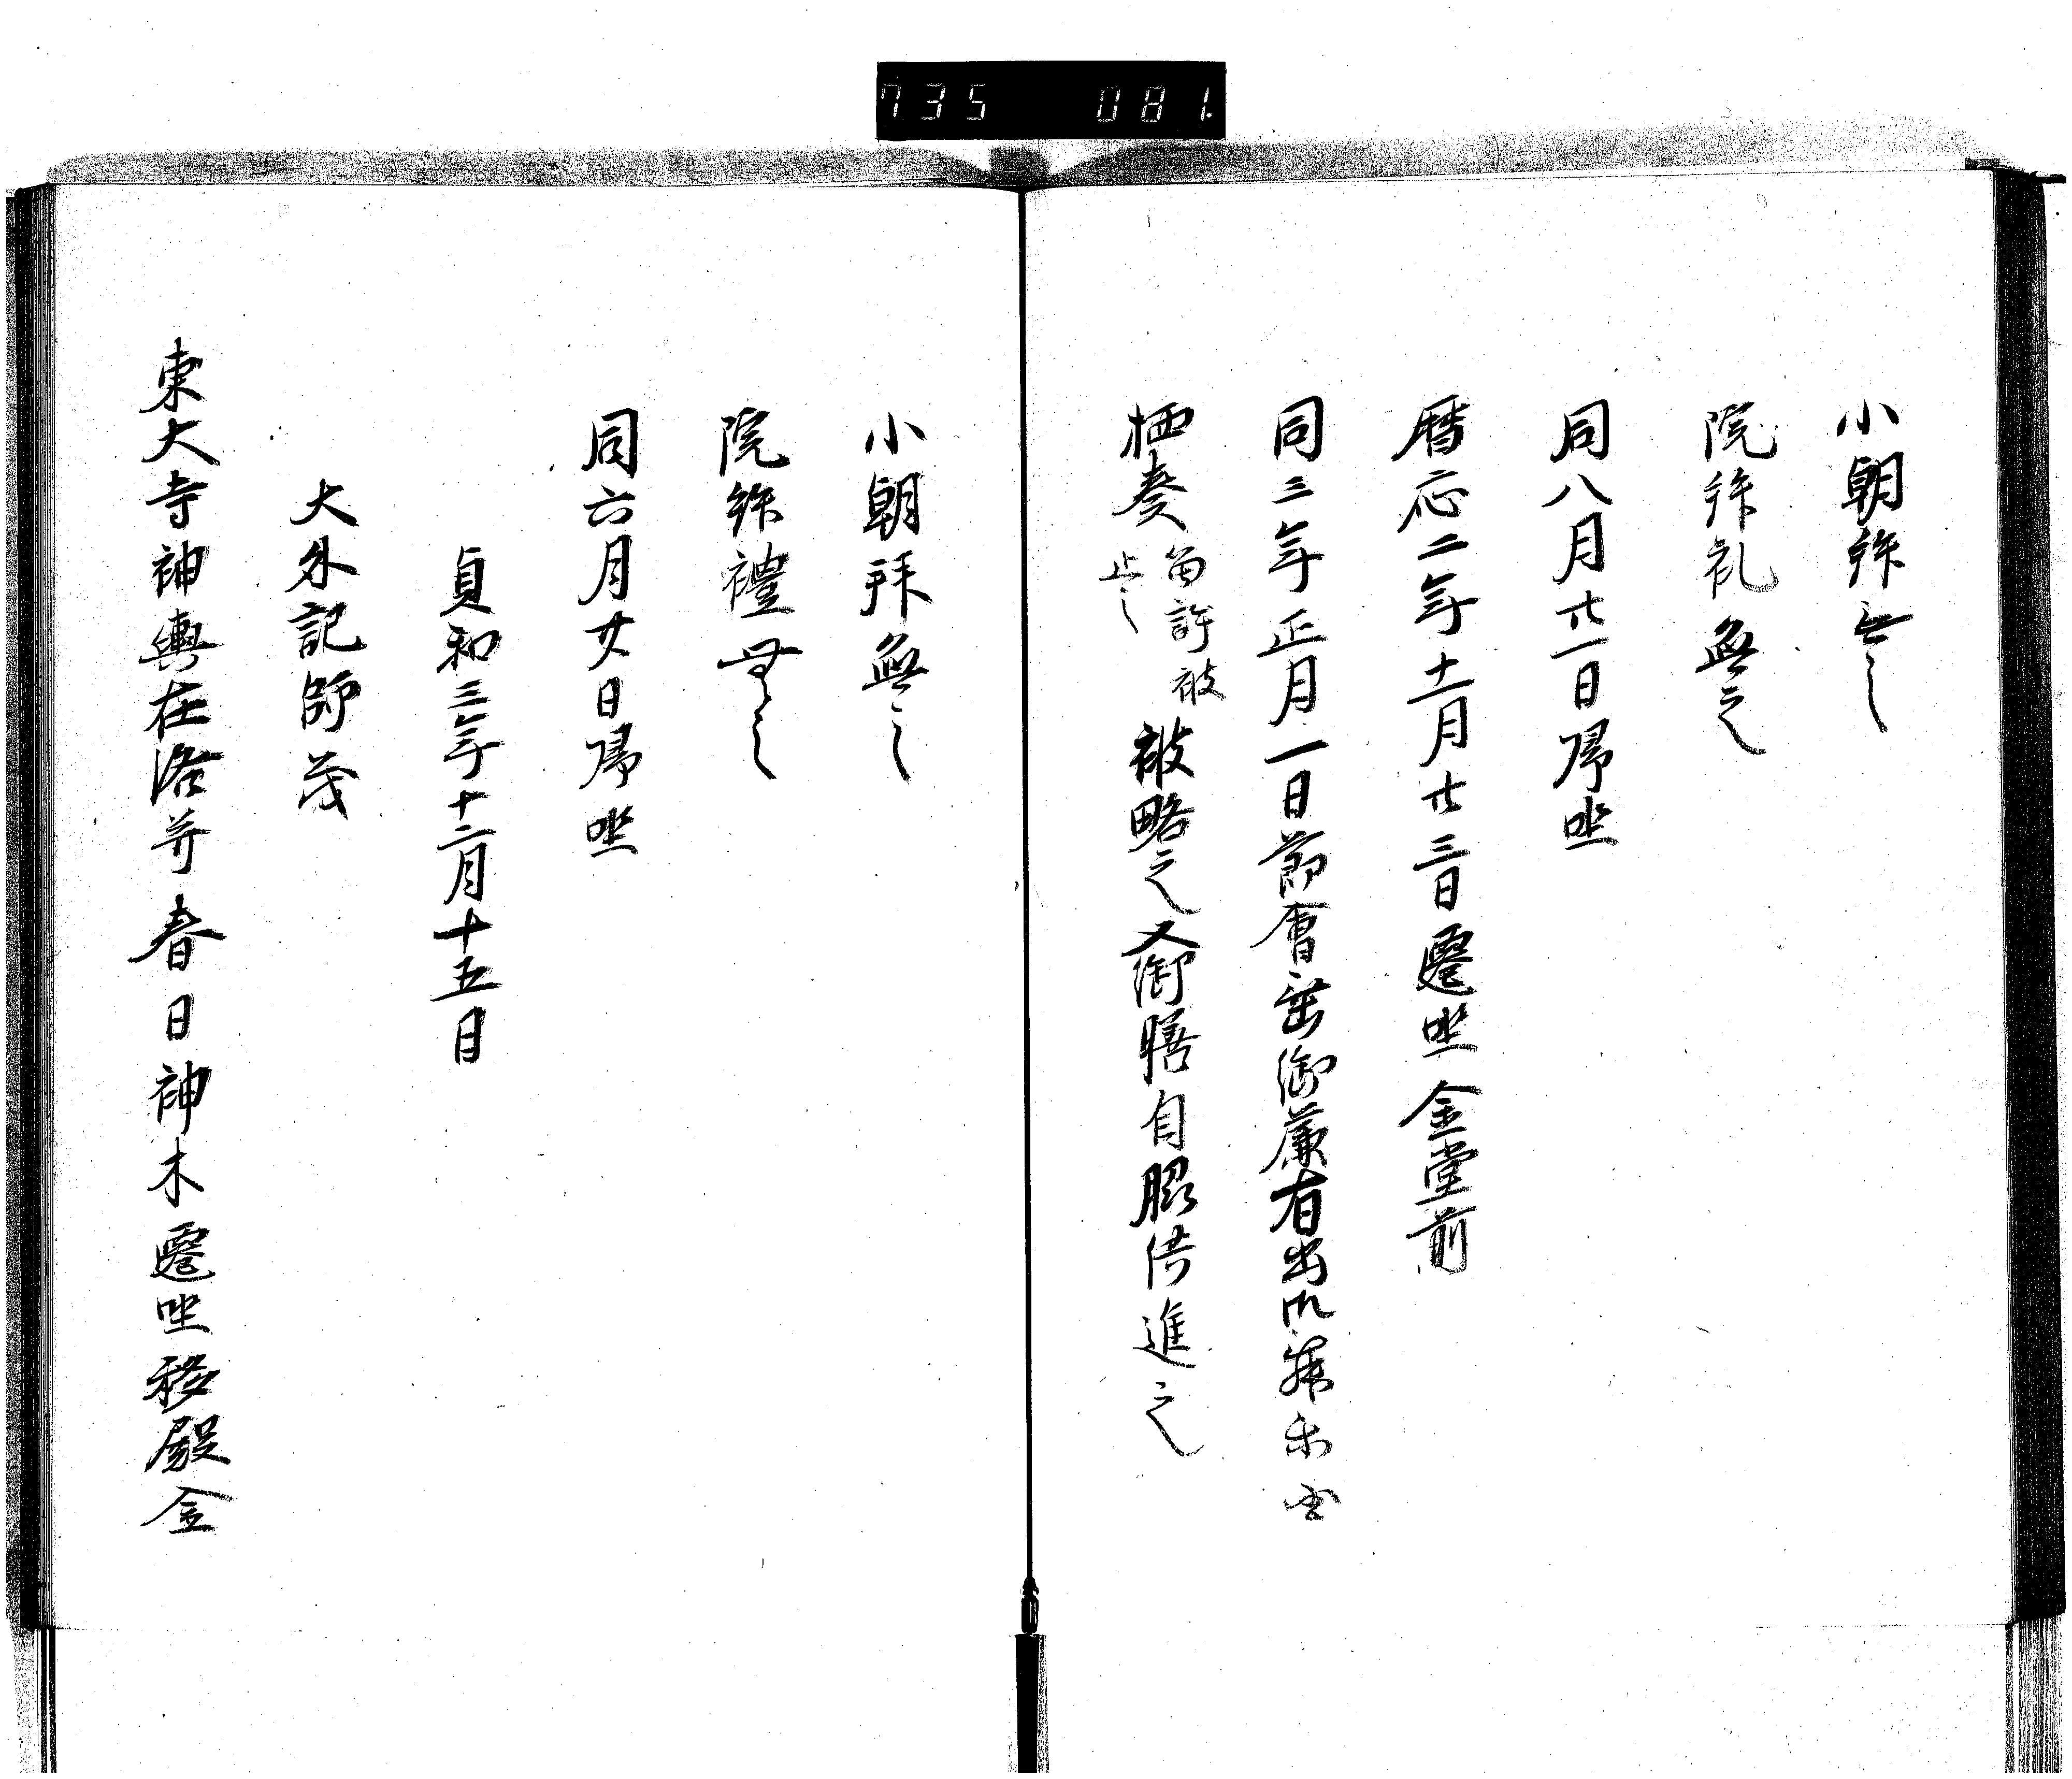 735 081
小朝拜無之
院拜礼無之
同八月廿一日歸坐
暦応二年十二月廿三日遷坐金堂前
同三年正月一日節會垂御簾有出御舞未
栖奏
留許被
止之
被略之又御膳自腋供進之
小朝拜無之
院拜禮無之
同六月廿日歸坐
貞和三年十二月十五日
大外記師茂
東大寺神輿在洛并春日神木遷坐移殿金